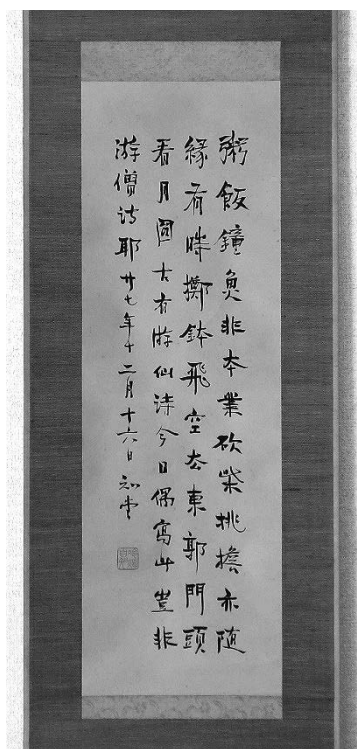 粥飯鐘魚非本業砍柴挑擔亦隨
緣有時擲鉢飛空去東郭門頭
看月圓古有游仙詩今日偶寫此豈非
游僧詩耶廿七年十二月十六日知堂